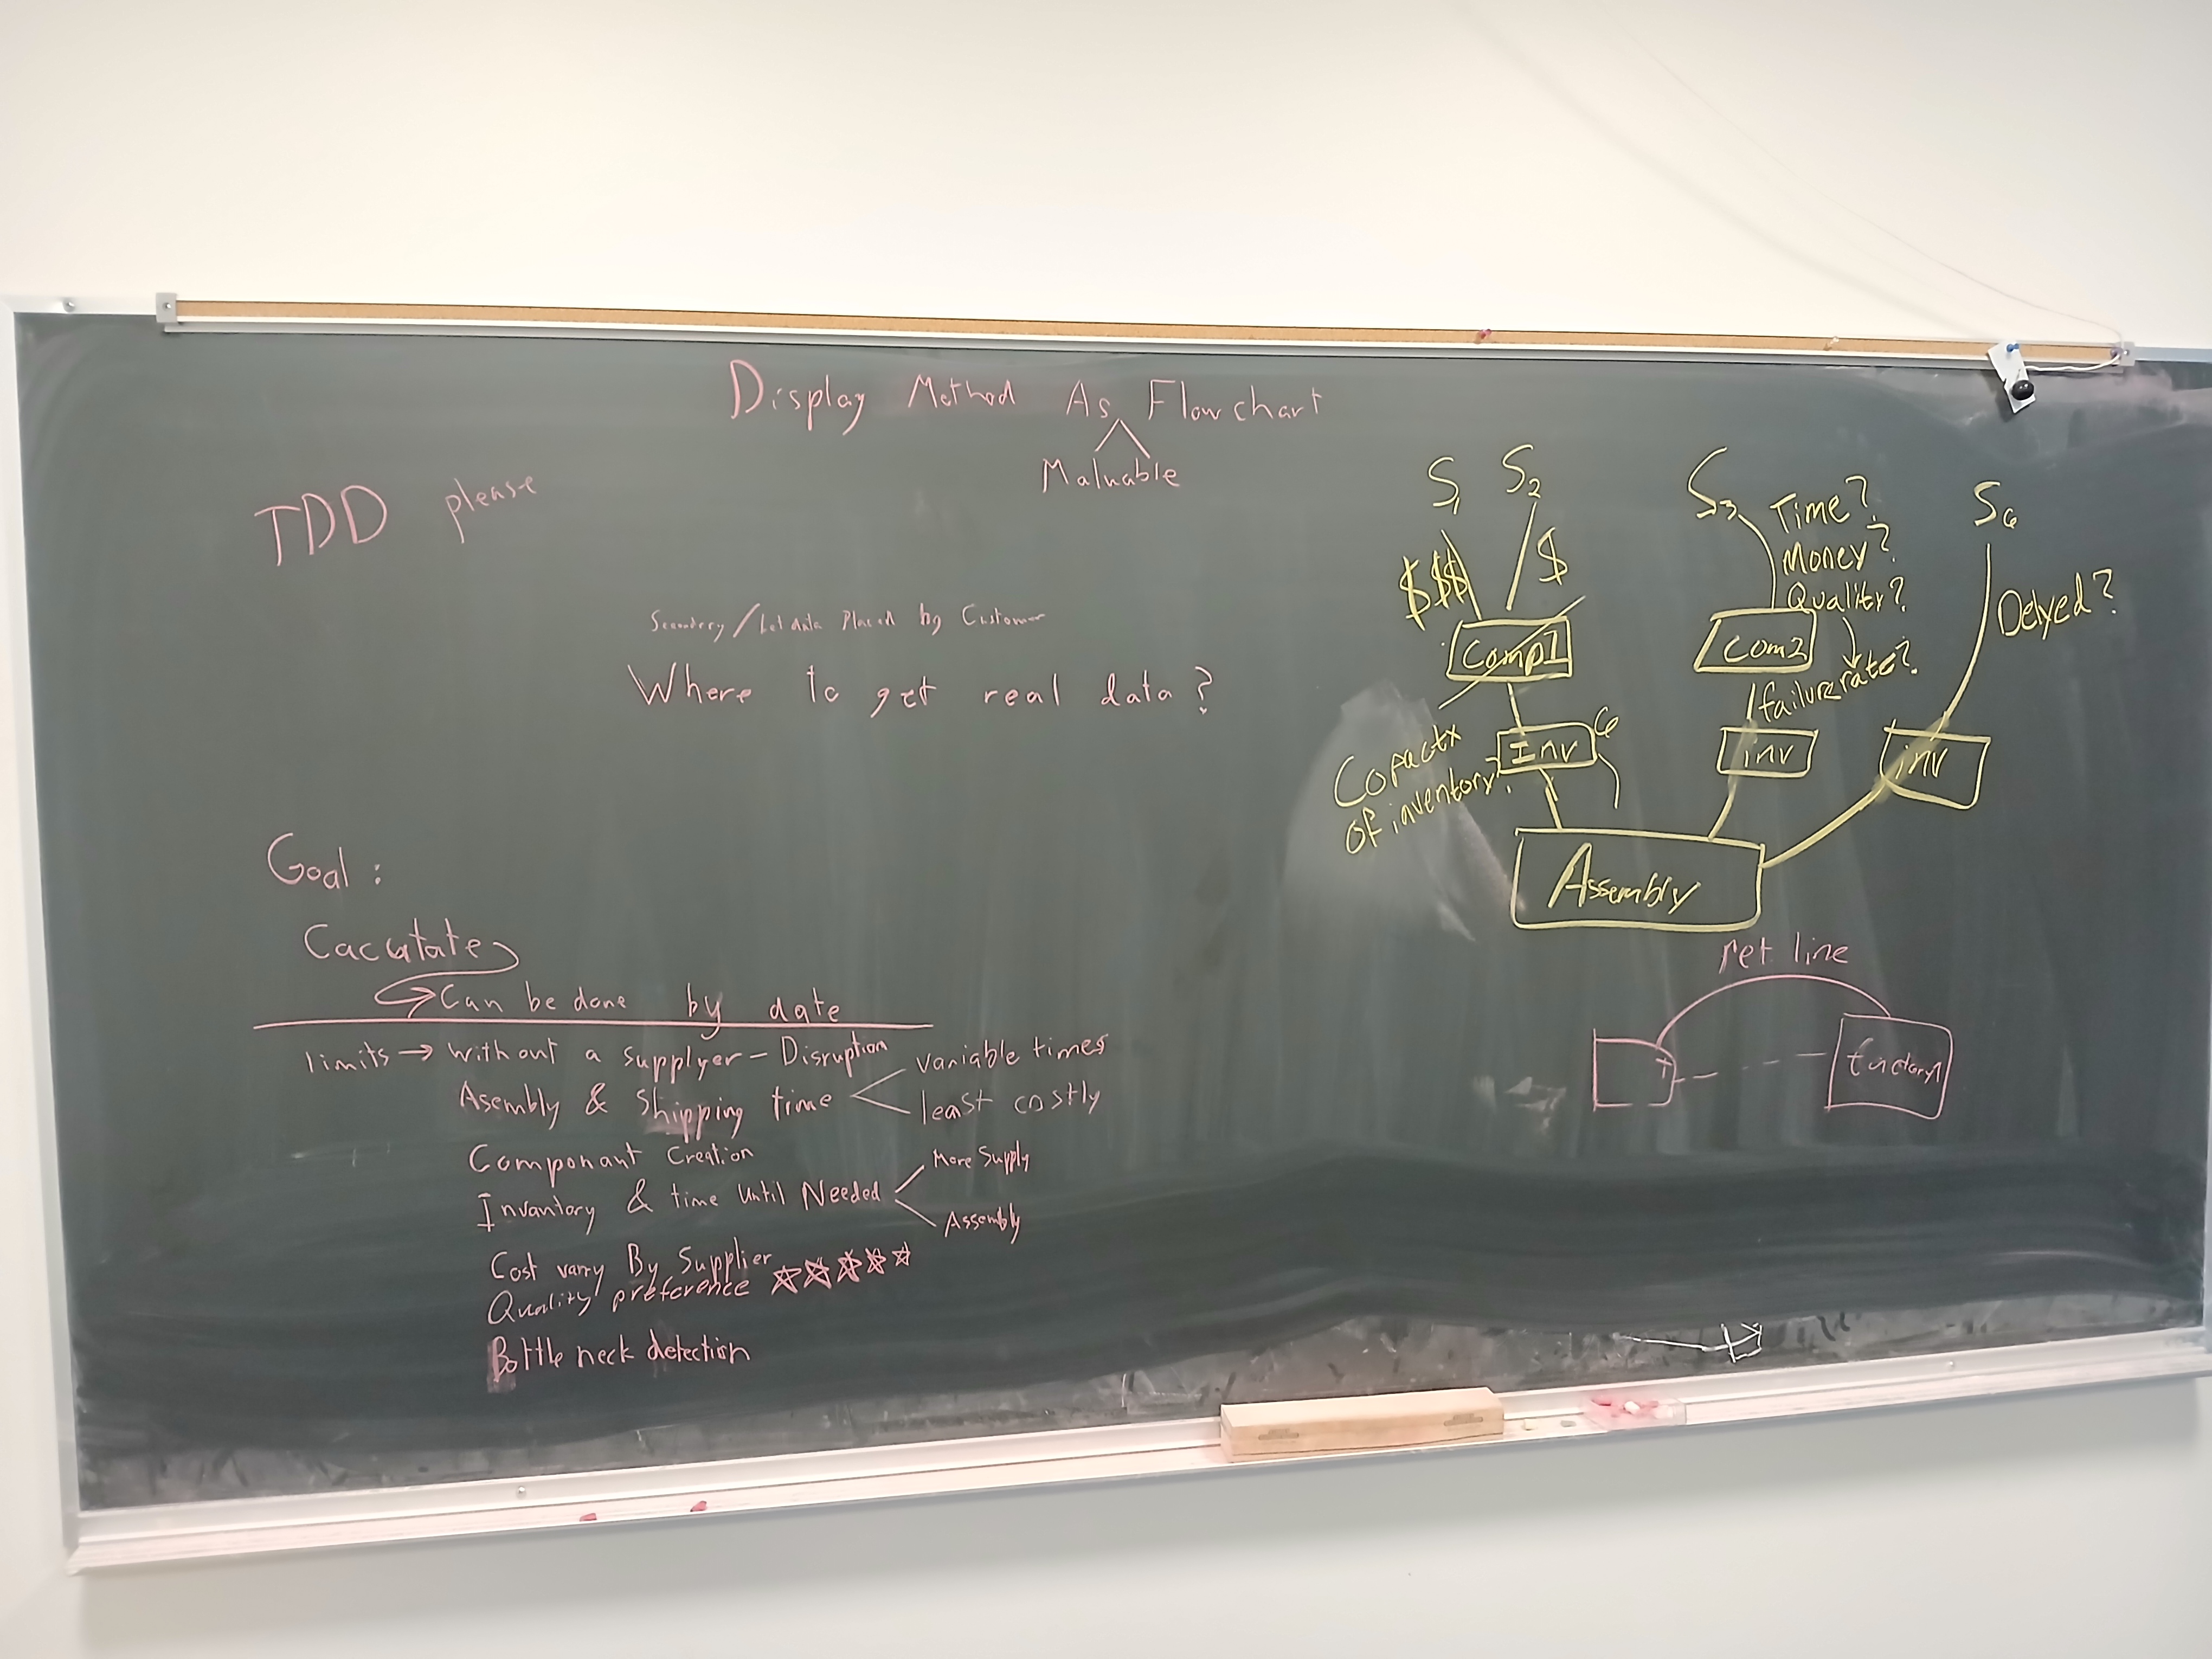 Display Method As Flowchart
Maluable
TDD please
Secondary / Let data Placed by Customer
Where to get real data?
Goal :
Cacutate
Can be done by date
limits → without a supplyer - Disruption
Asembly & Shipping time
variable times
least costly
Componant Creation
Invantory & time Until Needed
More Supply
Assembly
Cost varry By Supplier
Quality preference ☆☆☆☆☆
Bottle neck detection
S1 S2
$$$ $
Comp1
Inv 6
Copactx
of inventory?
S3
Time?
Money?
Quality?
failure rate?
Com2
inv
S6
Delyed?
inv
Assembly
ret line
factory1